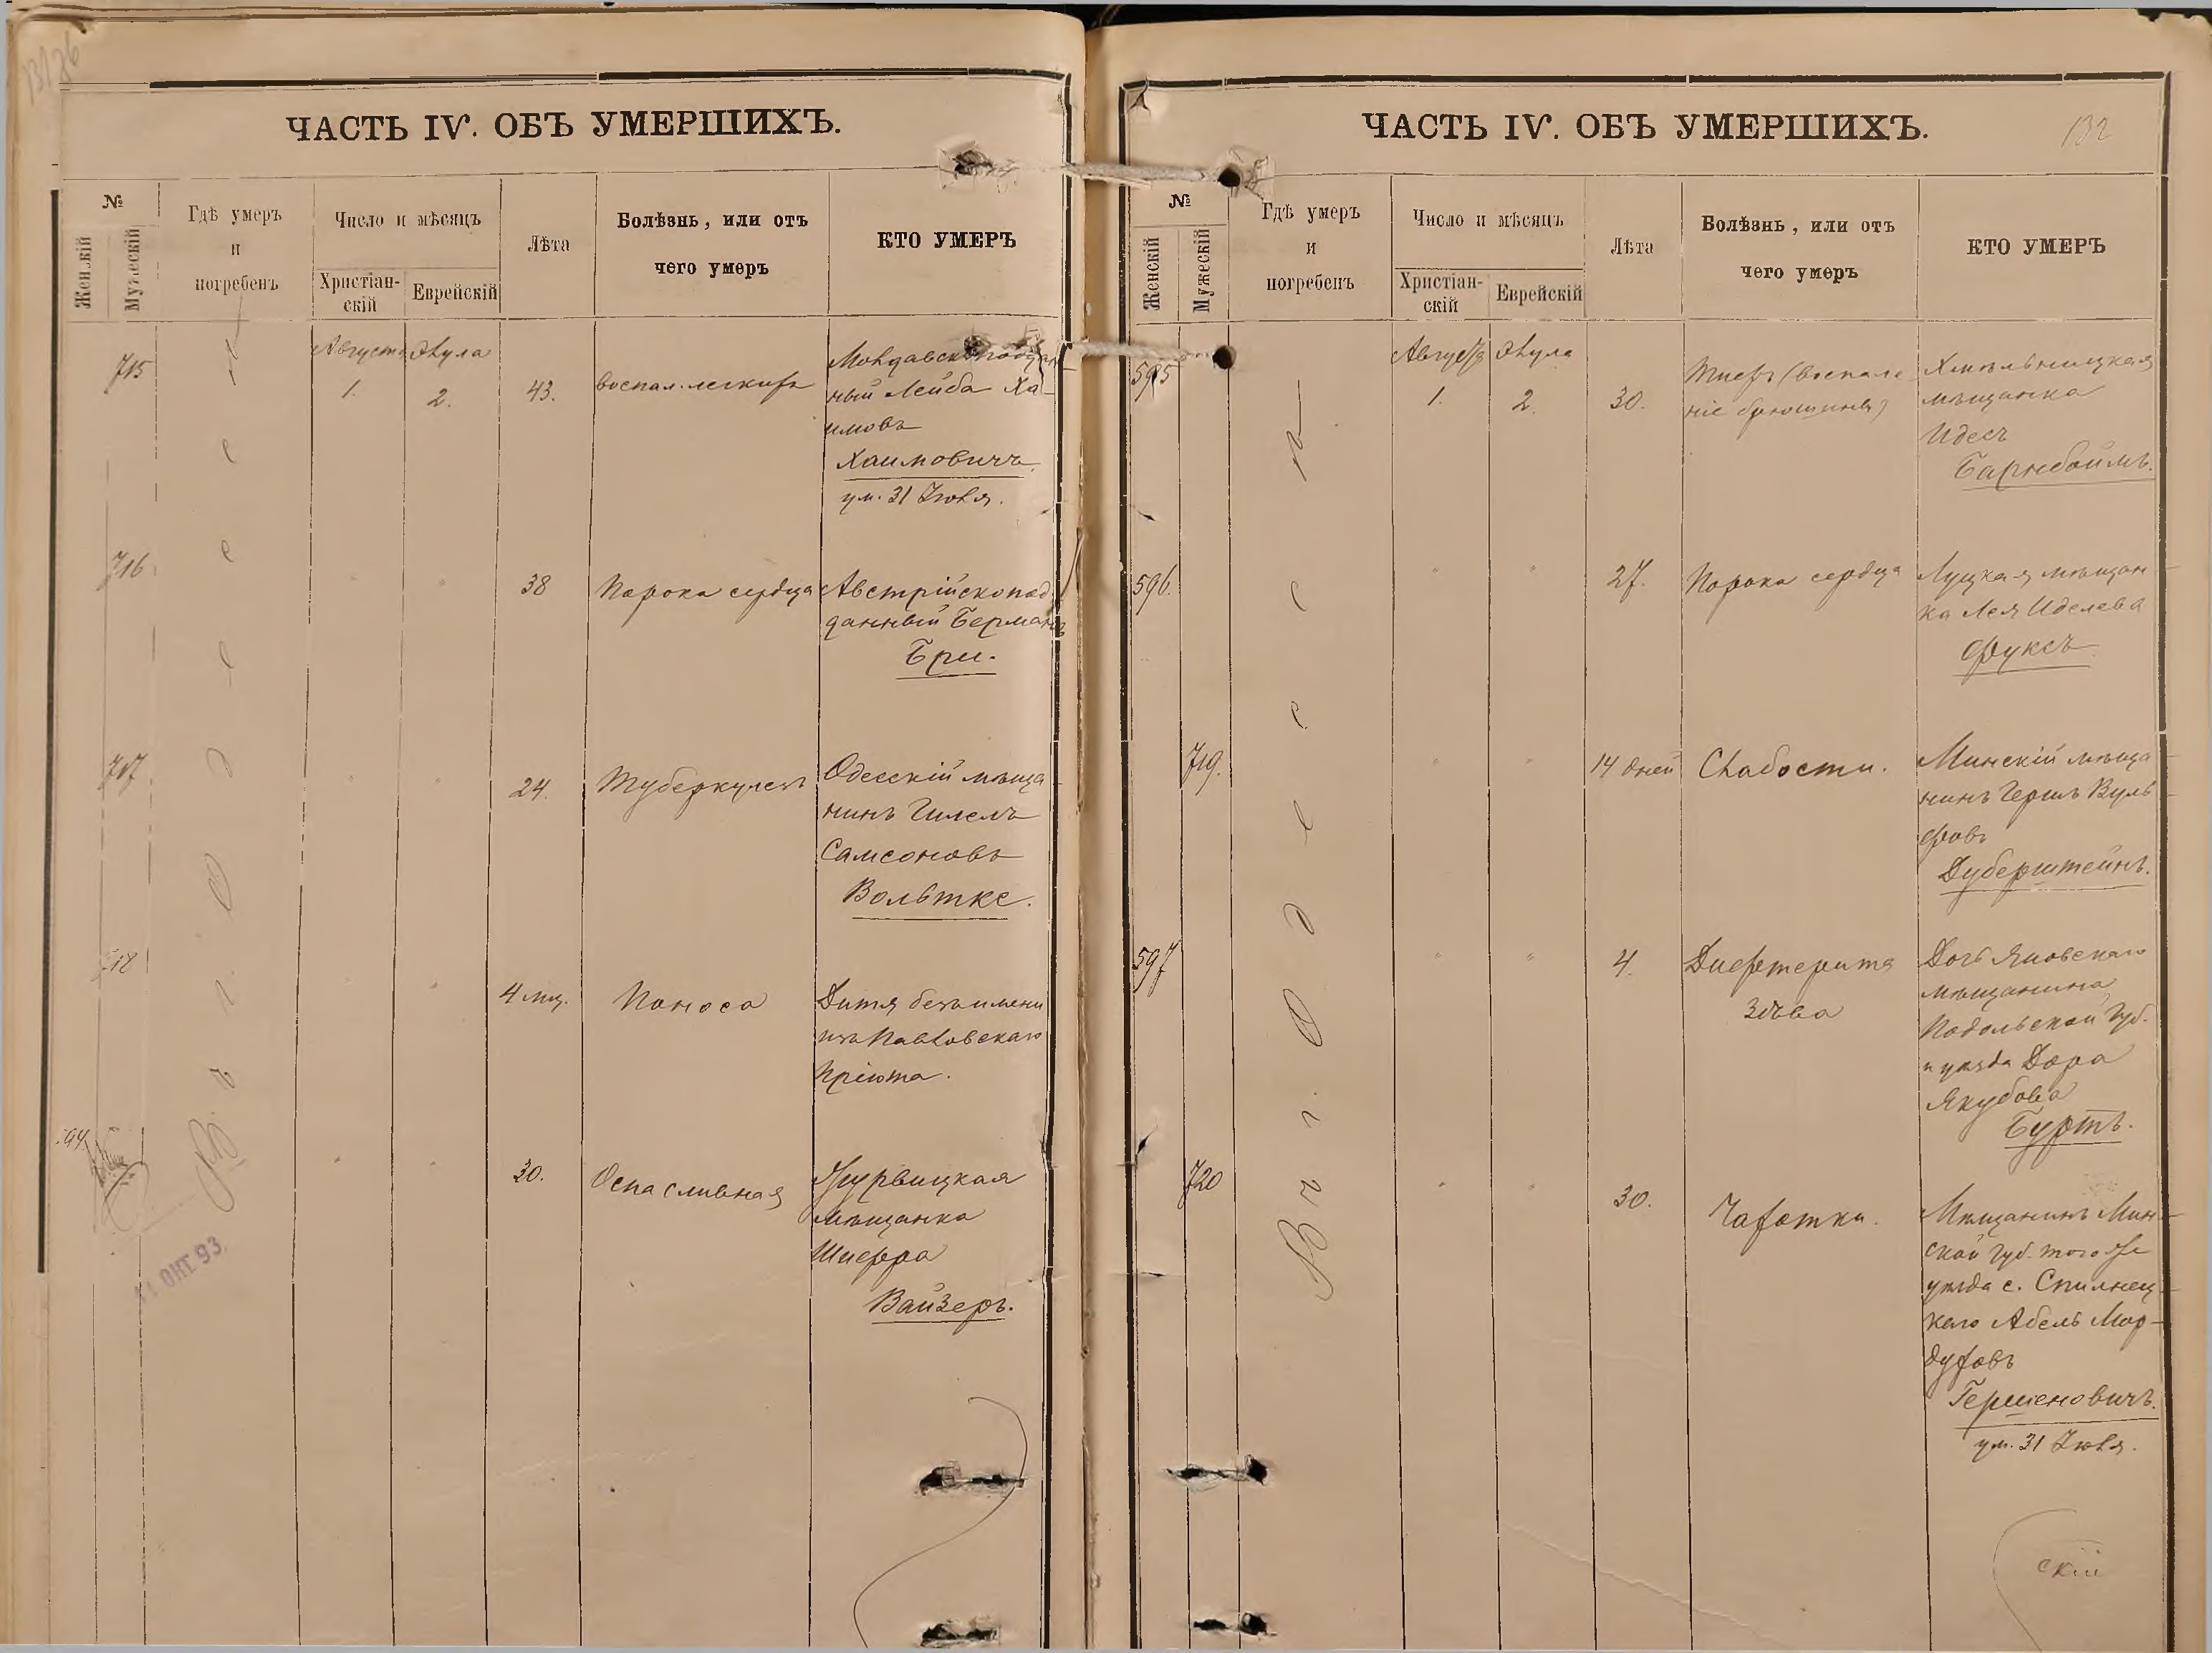 131/26
ЧАСТЬ IV. ОБЪ УМЕРШИХЪ.
№
Женскій
Мужескій
Гдѣ умеръ
и
погребенъ
Число и мѣсяцъ
Христіан-
скій
Еврейскій
Лѣта
Болѣзнь, или отъ
чего умеръ
КТО УМЕРЪ
Въ г. Одессѣ
715
Августа
1.
Элула
2.
43.
воспал. легкихъ
Молдавскоподдан-
ный Лейба Ха-
имовъ
Хаимовичъ
ум. 31 Іюля.
716
"
"
38
Порока сердца
Австрійскопод
данный Германъ
Бри.
717.
"
"
24.
Туберкулезъ
Одесскій мѣща
нинъ Гилелъ
Самсоновъ
Вольтке.
718
"
"
4 мц.
Поноса
Дитя безъ имени
изъ Павловскаго
Пріюта.
594
"
"
30.
Оспа сливная
мѣщанка
Шифра
Вайзеръ.
11 ОКТ. 93
ЧАСТЬ IV. ОБЪ УМЕРШИХЪ.
132
№
Женскій
Мужескій
Гдѣ умеръ
и
погребенъ
Число и мѣсяцъ
Христіан-
скій
Еврейскій
Лѣта
Болѣзнь, или отъ
чего умеръ
КТО УМЕРЪ
Въ г. Одессѣ
595
Августа
1.
Элула
2.
30.
Тифъ (воспале
ніе брюшины)
Хмѣльницкая
мѣщанка
Идесъ
Барнбоймъ.
596.
"
"
27.
Порока сердца
Луцкая мѣщан-
ка Лея Иделева
Фуксъ
719.
"
"
14 дней
Слабости.
Минскій мѣща-
нинъ Гершъ Вуль-
фовъ
Дуберштейнъ.
597
"
"
4.
Дифтерита
зѣва
Дочь Яновскаго
мѣщанина
Подольской губ.
и уѣзда Дора
Якубова
Буртъ.
720
"
"
30.
Чахотки.
Мѣщанинъ Мин-
ской губ. того же
уѣзда с.
Абель Мор-
духовъ
Гершеновичъ.
ум. 31 Іюля.
скій